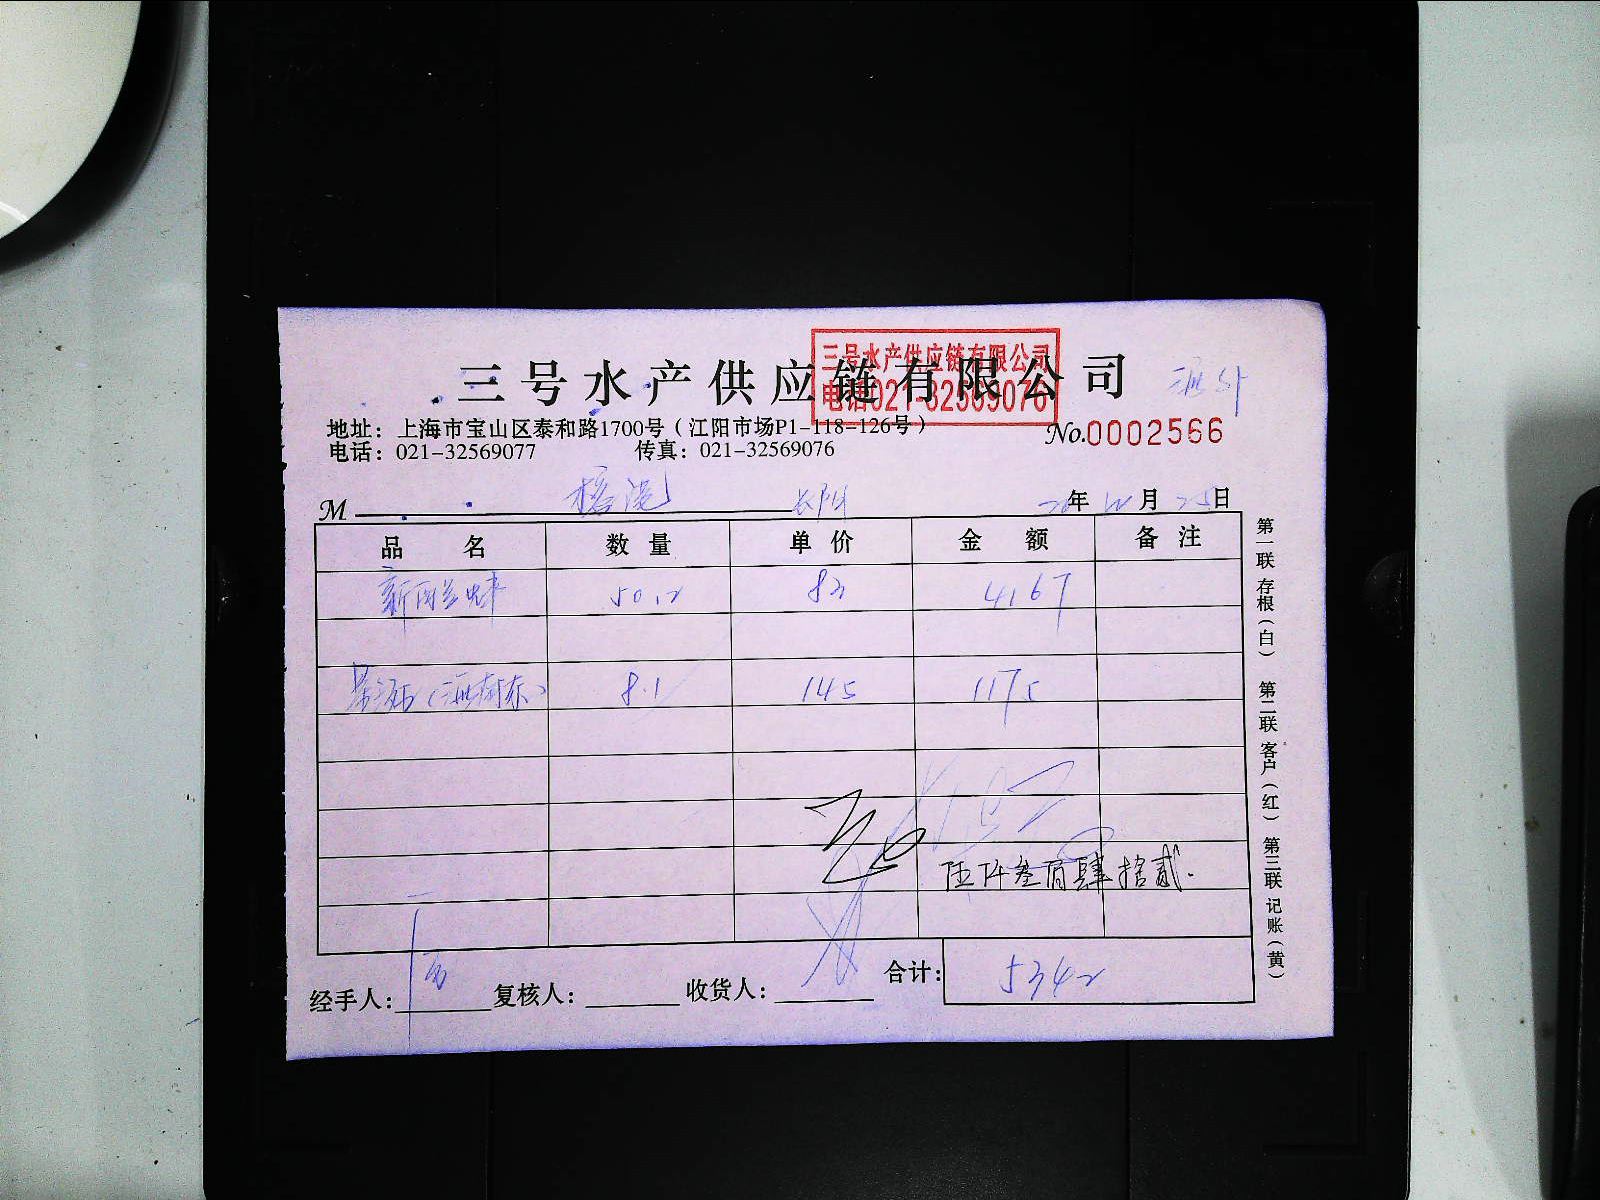 三号水产供应链有限公司
三号水产供应链有限公司
电话021-32569076
地址：上海市宝山区泰和路1700号（江阳市场P1-118-126号）
No.0002566
电话：021-32569077 传真：021-32569076
M 年 月 25日
品名 数量 单价 金额 备注
新西兰 50.2 83 4167
8.1 145 1175
伍仟叁佰肆拾贰.
经手人： 复核人： 收货人： 合计： 5342
第一联 存根（白） 第二联 客户（红） 第三联 记账（黄）